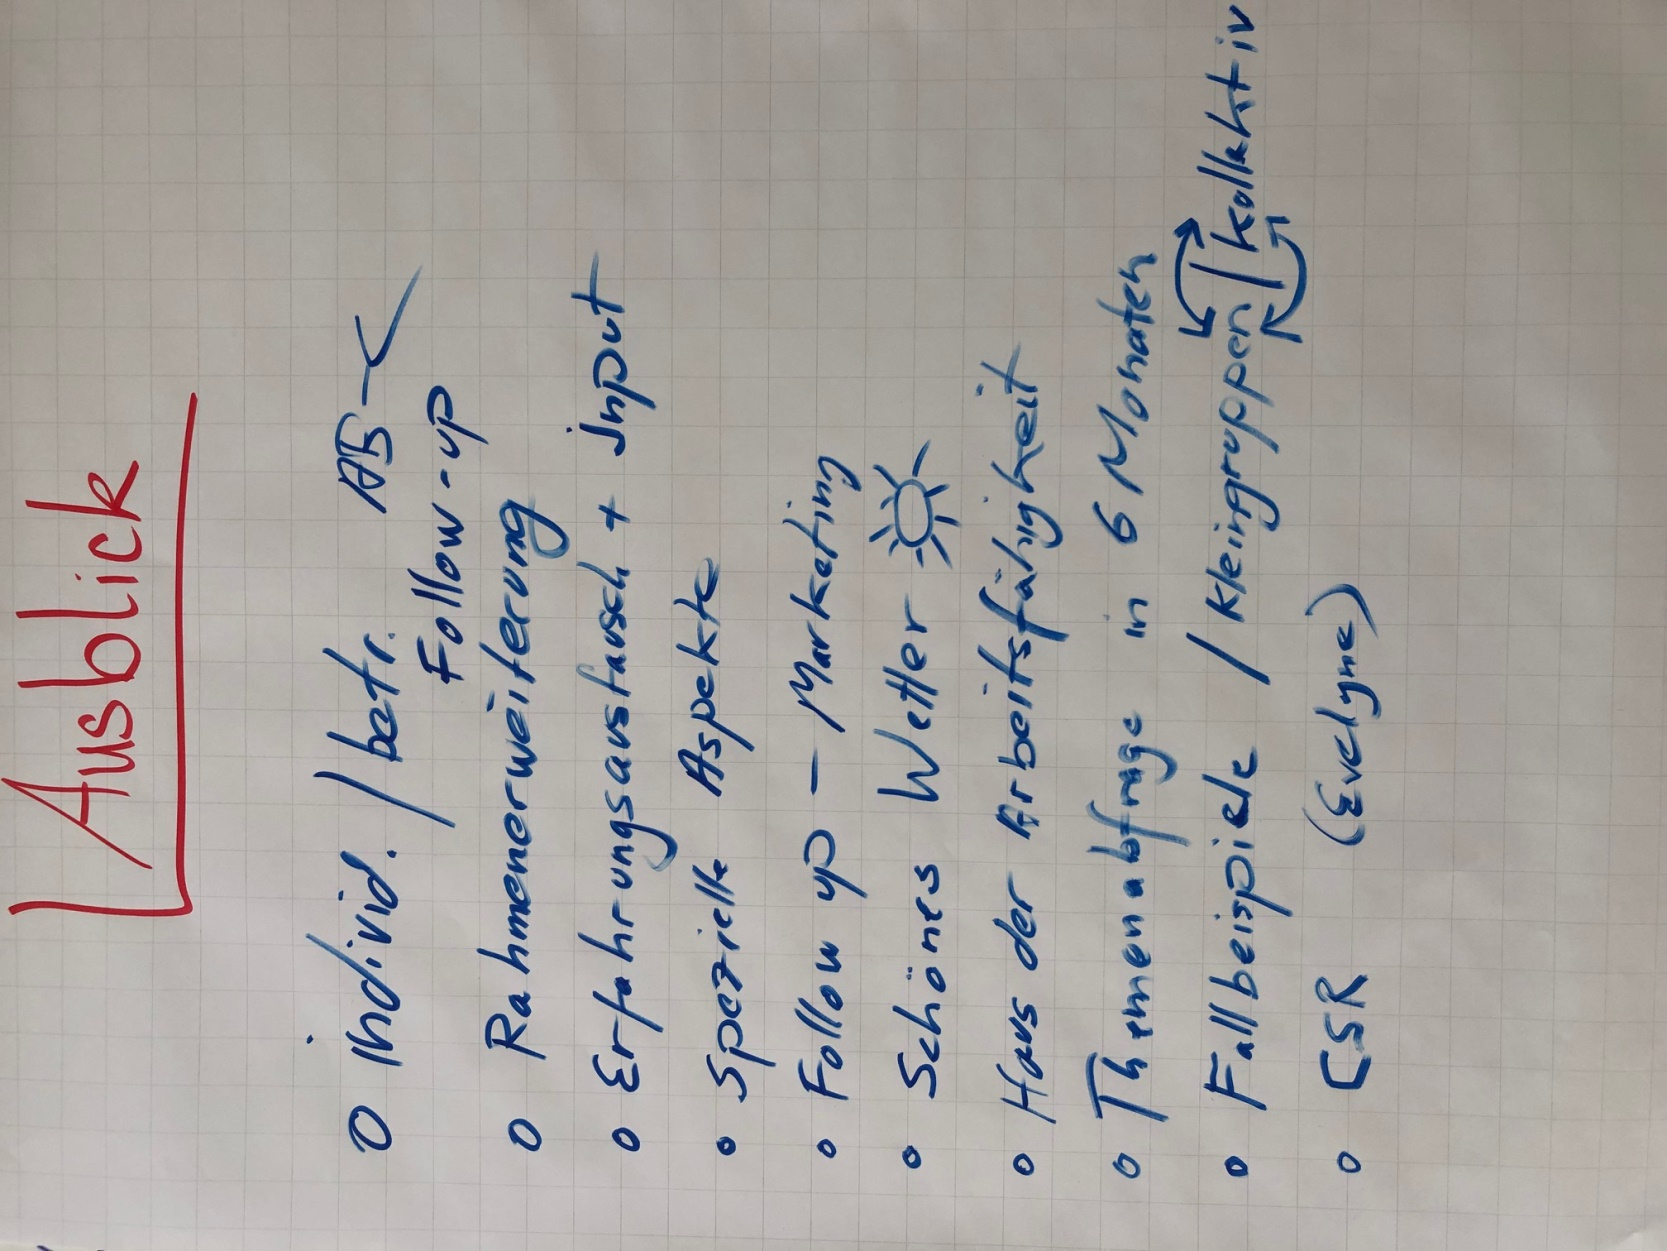 Ausblick
individ. / betr. AB
Follow-up
Rahmenerweiterung
Erfahrungsaustausch + Input
Spezielle Aspekte
Follow up – Marketing
Schönes Wetter
Haus der Arbeitsfähigkeit
Themenabfrage in 6 Monaten
Fallbeispiele / Kleingruppen / kollektiv
CSR (Evelyne)